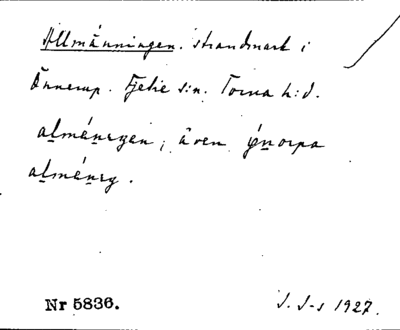 Allmänningen. strandmark i
Önnerup. Fjelie s:n. Torna h:d.
alménıŋen; även
alménıŋ.
Nr 5836. J. J-s 1927.